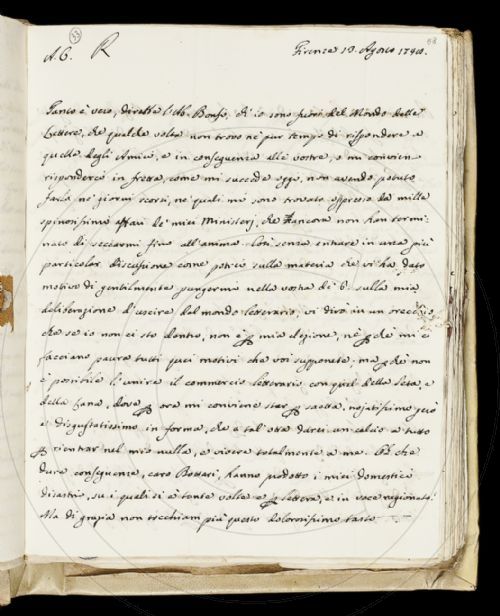 33
58
A. C. R Firenze 13. Agosto 1740.
Tanto è vero, diretto Sig. Ab. Bonso, ch'io sono fuori del Mondo delle
Lettere, che qualche volta non trovo nè pur tempo di rispondere a
quelle degli Amici, e in conseguenza alle vostre, o mi convien
rispondere in fretta, come mi succede oggi, non avendo potuto
farlo ne' giorni scorsi, ne' quali mi sono trovato oppresso da mille
spinosissimi affari de' miei Ministerj, che ancora non han termi:
nato di seccarmi fino all'anima. Così senza entrare in una più
particolar discussione come potrei sulla materia che vi ha dato
motivo di gentilmente pungermi nella vostra di 6. sulla mia
deliberazione d'uscire dal mondo letterario, vi dirò in un orecchio
che se io non ci sto dentro, non è p mia elezione, nè pchè mi
facciano paura tutti quei motivi che voi supponete, ma pchè non
è possibile l'unire il commercio letterario con quel della Seta, e
della Lana, dove p ora mi conviene star p saetta, nojatissimo però
e disgustatissimo in forma, che a tal'ora darei un calcio a tutto
p rientrar nel mio nulla, e vivere totalmente a me. Eh che
dure conseguenze, caro Bottari, hanno prodotto i miei domestici
disastri, su i quali si è tante volte e p lettera, e in voce ragionato!
Ma di grazia non tocchiam più questo dolorosissimo tasto